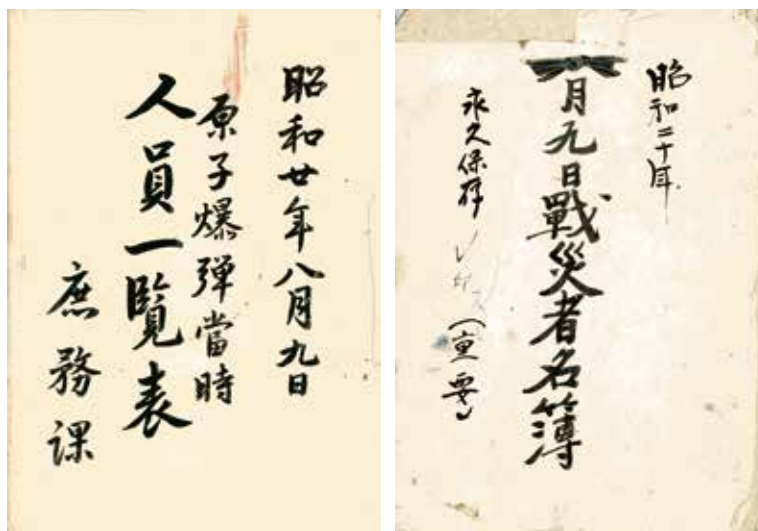 昭和廿年八月九日
原子爆弾當時
人員一覧表
庶務課
昭和二十年
月九日戰災者名簿
永久保存
(重要)